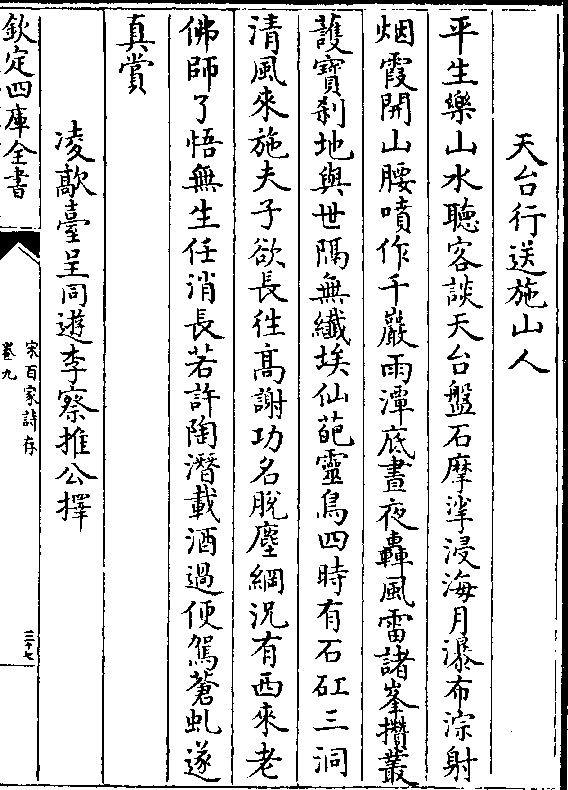 天台行送施山人
平生樂山水聽客談天台盤石摩挲浸海月瀑布淙射
烟霞開山腰噴作千巖雨潭底晝夜轟風雷諸峯攢叢
䕶寶刹地與世隔無纎埃仙葩靈鳥四時有石矼三洞
清風來施夫子欲長徃髙謝功名脫塵網況有西來老
佛師了悟無生任消長若許陶潛載酒過便駕蒼虬遂
真賞
凌歊臺呈同遊李察推公擇
欽定四庫全書
宋百家詩存
卷九
三十七